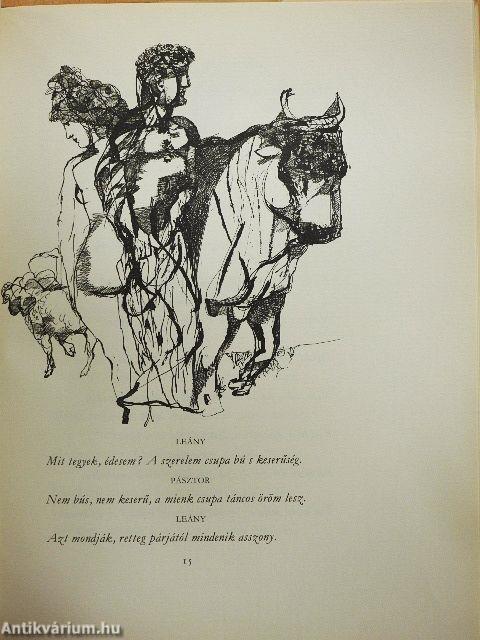 LEÁNY
Mit tegyek, édesem? A szerelem csupa bú s keserűség.
PÁSZTOR
Nem bús, nem keserű, a mienk csupa táncos öröm lesz.
LEÁNY
Azt mondják, retteg párjától mindenik asszony.
15
Antikvárium.hu